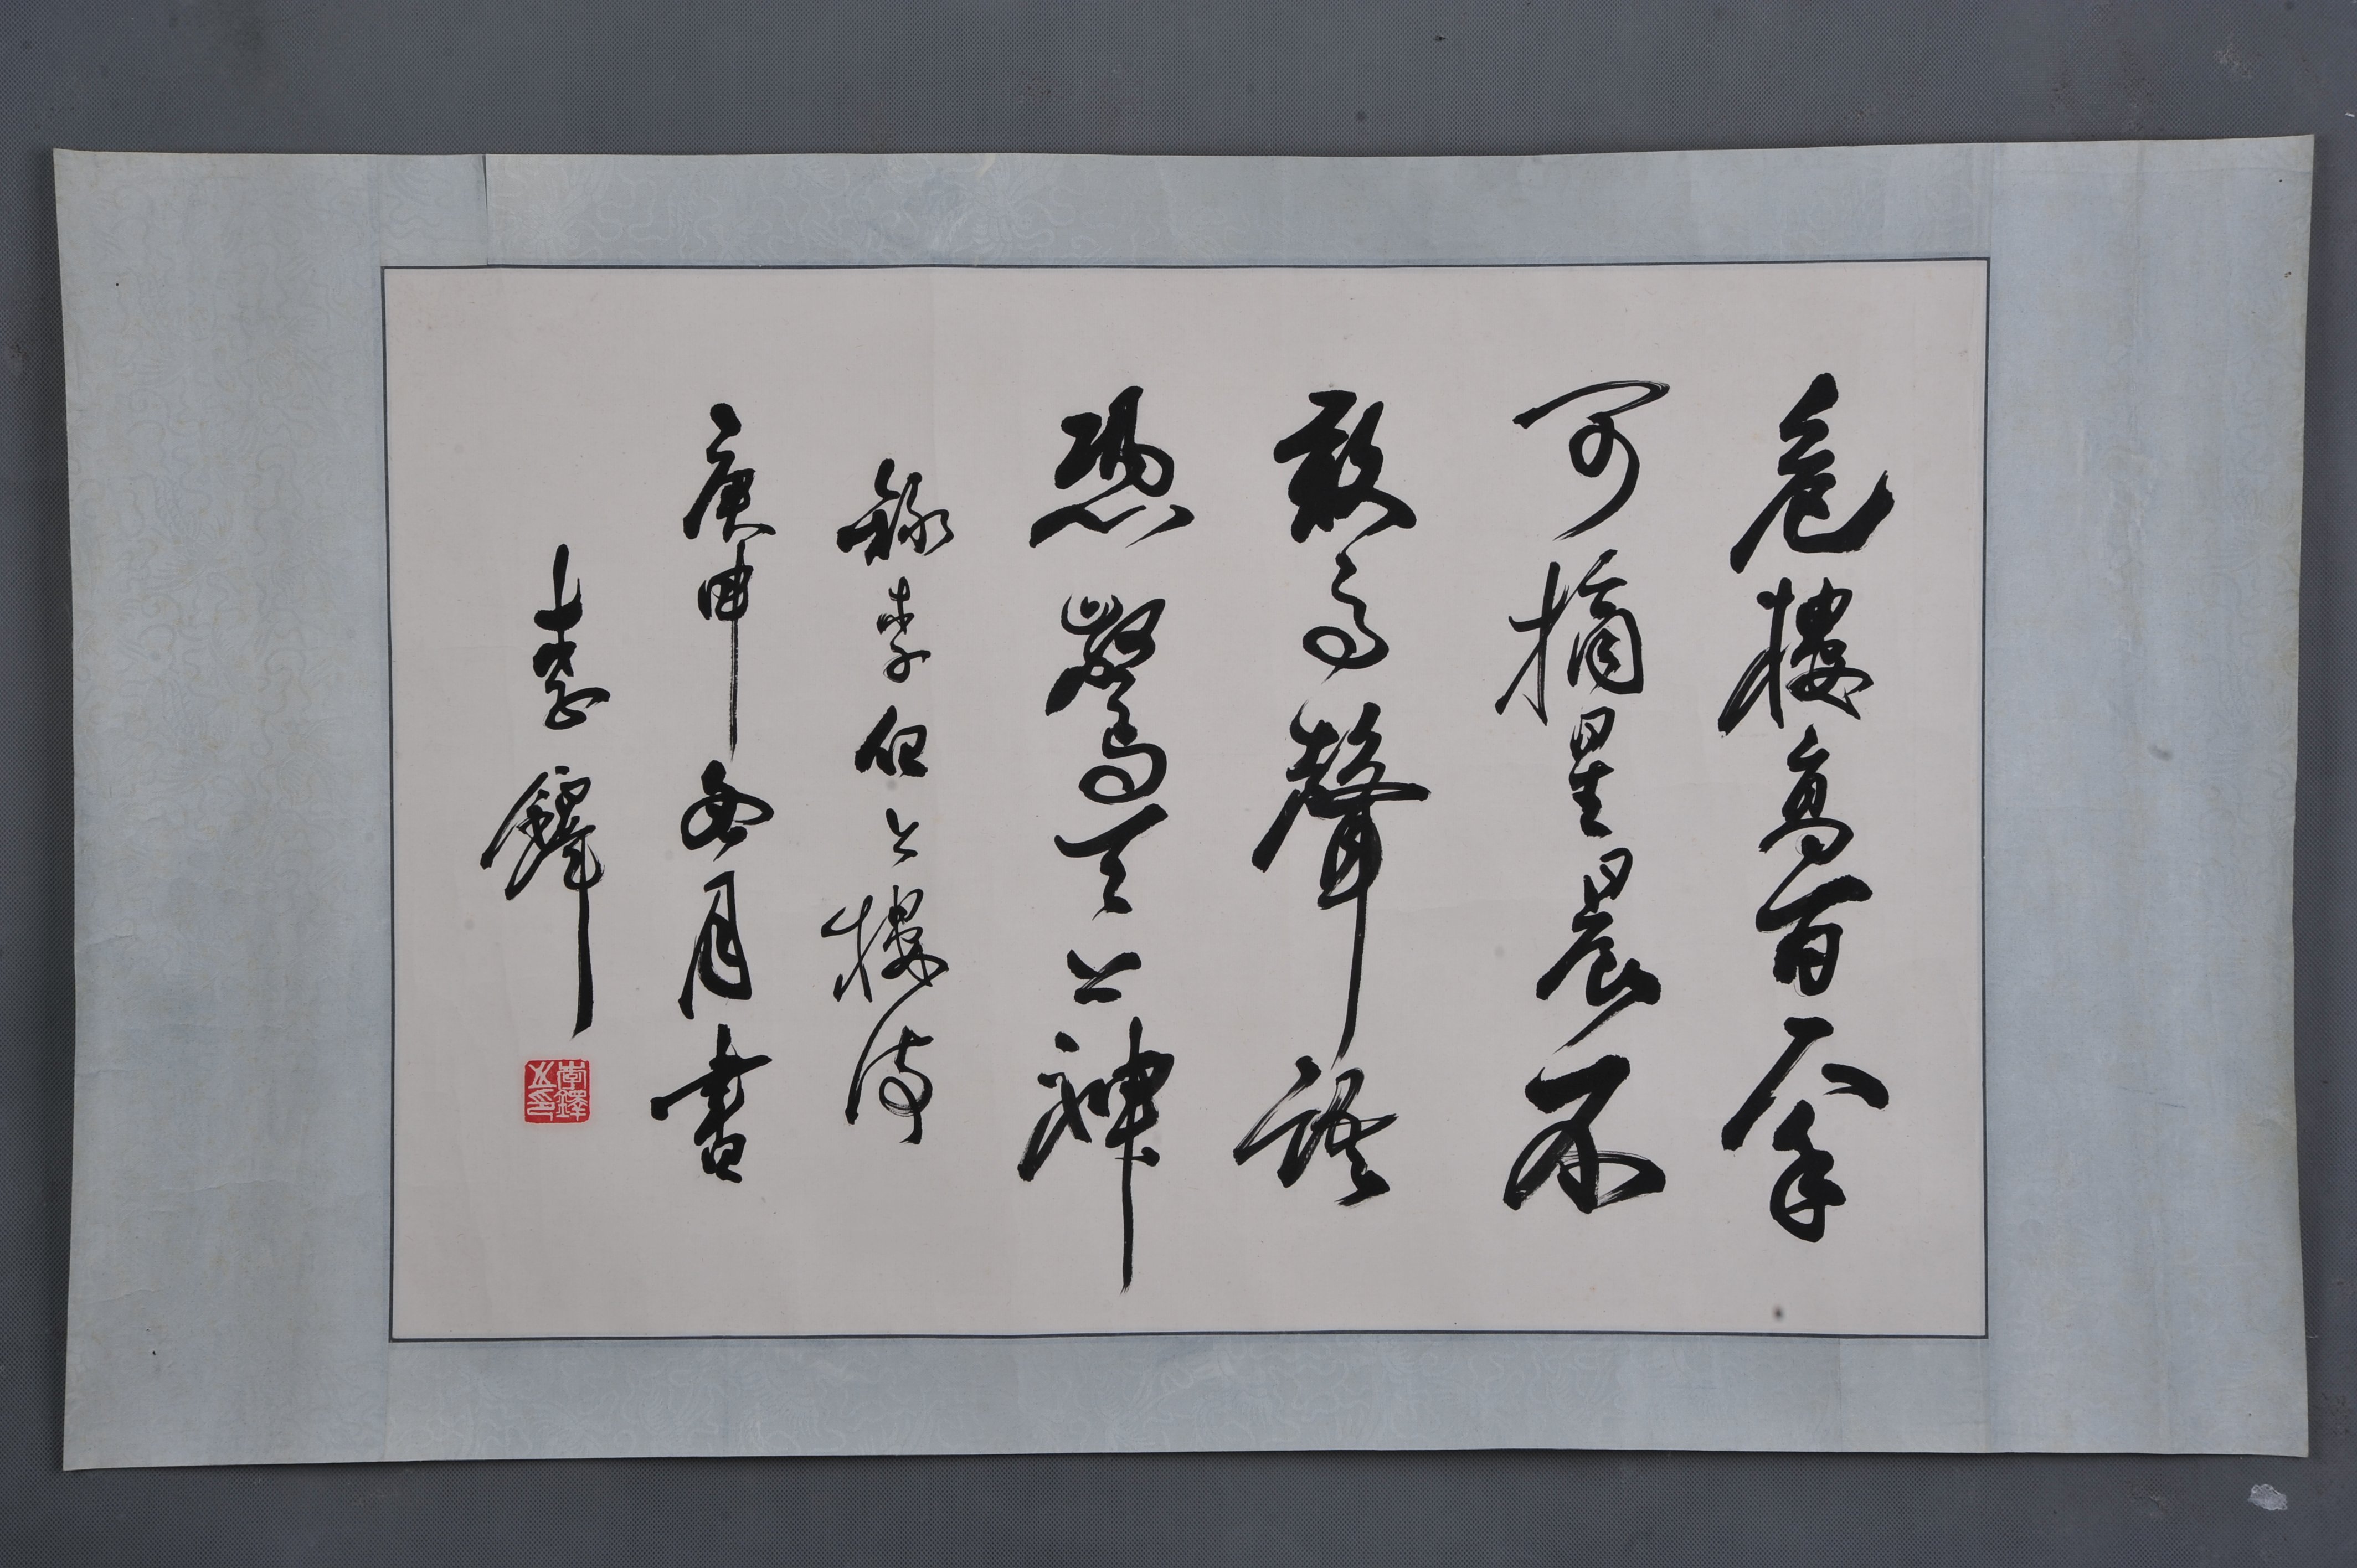 危樓高百尺手
可摘星晨不
敢高聲語
恐驚天上神
録李伯上樓诗
庚申冬月書
李鐸
李鐸之印